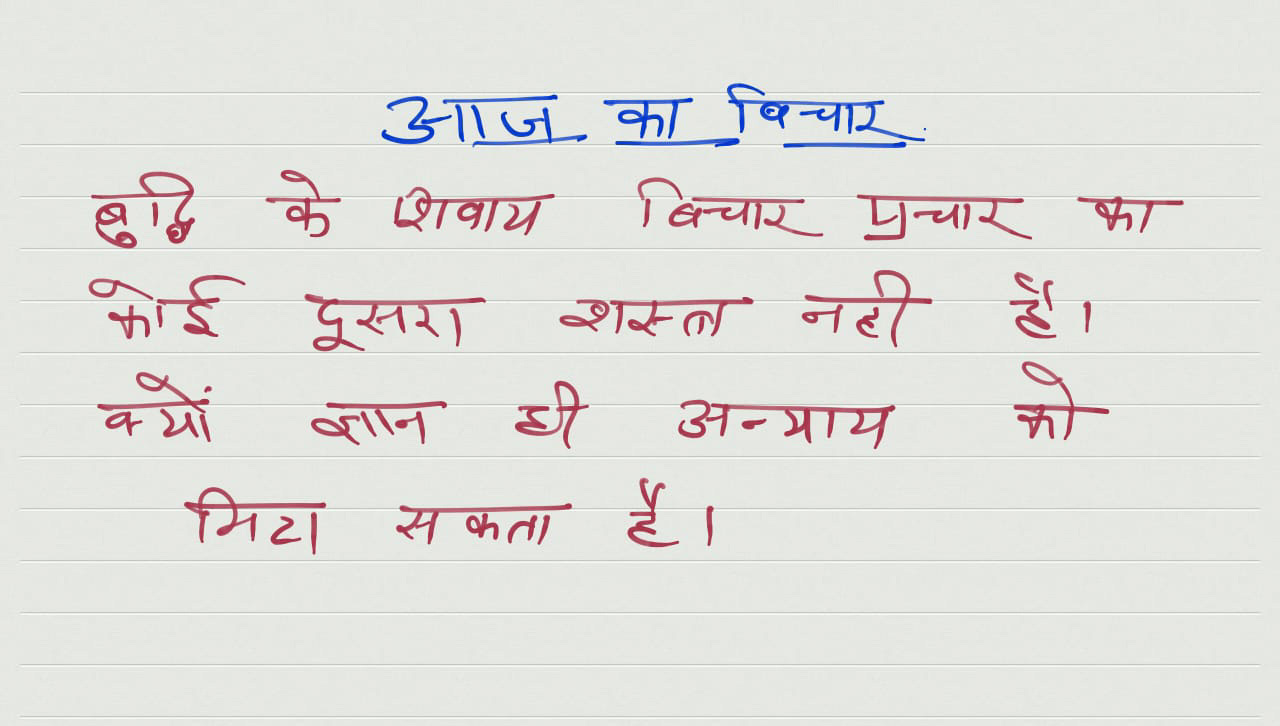 आज का बिचार
बुद्धि के शिवाय बिचार प्रचार का
कोई दूसरा शस्त्र नही है।
क्यों ज्ञान ही अन्याय को
मिटा सकता है।